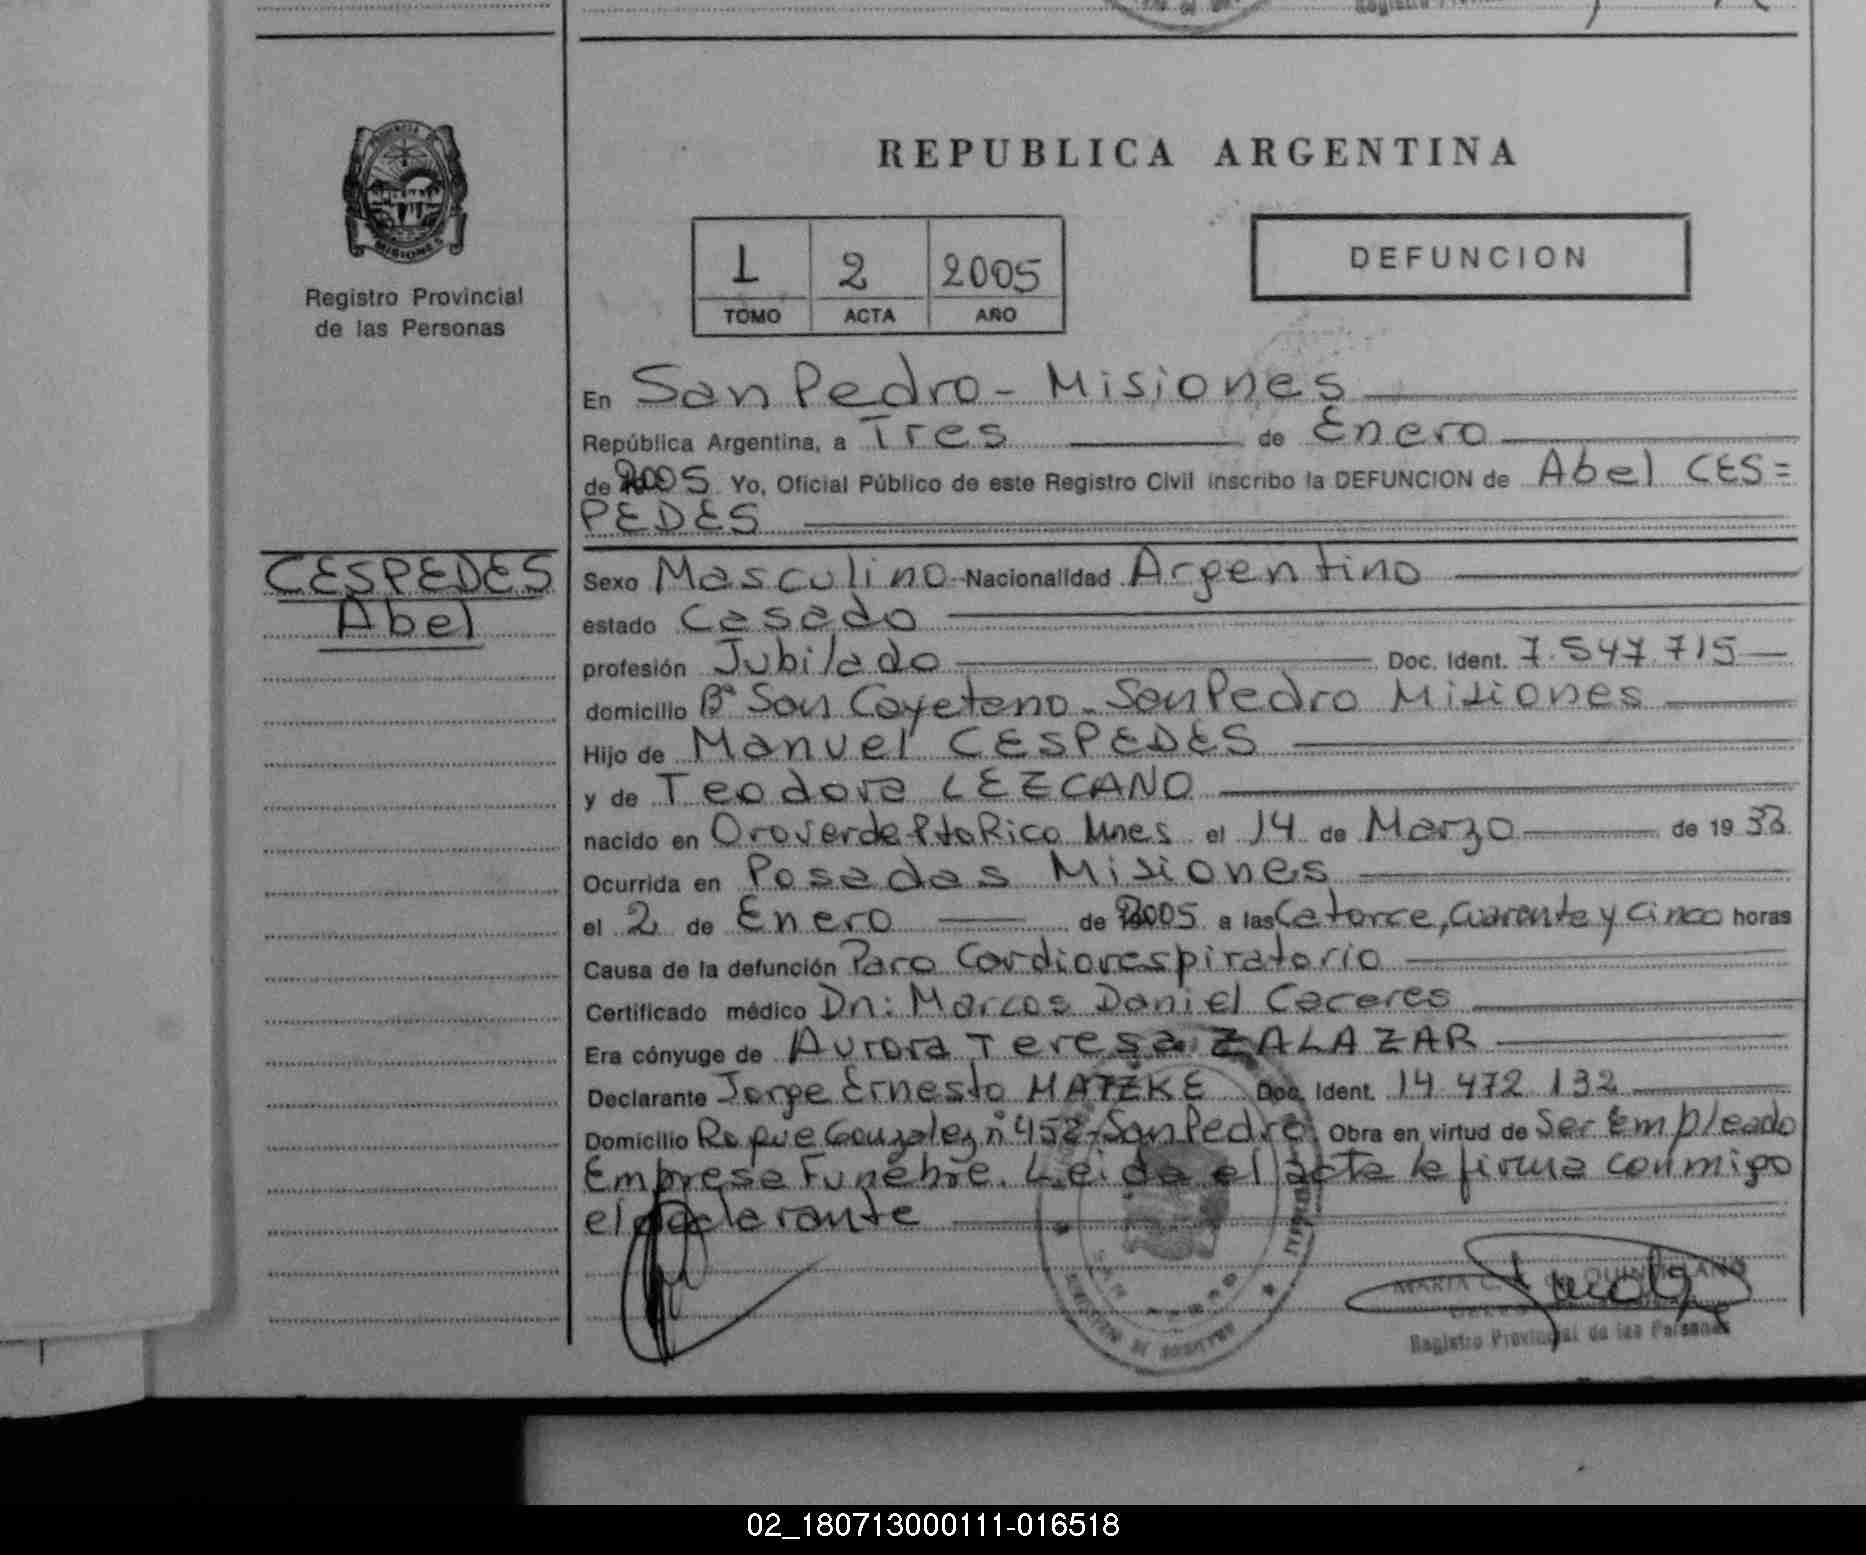 REPUBLICA ARGENTINA
MISIONES
Registro Provincial
de las Personas
1 2 2005
TOMO ACTA AÑO
DEFUNCION
En San Pedro - Misiones
República Argentina, a Tres de Enero
de 2005 Yo, Oficial Público de este Registro Civil inscribo la DEFUNCION de Abel CES=
PEDES
CESPEDES
Abel
Sexo Masculino Nacionalidad Argentino
estado Casado
profesión Jubilado Doc. Ident. 7.547.715
domicilio Bº San Cayetano - San Pedro Misiones
Hijo de Manuel CESPEDES
y de Teodora LEZCANO
nacido en Oroverde Pto Rico Mnes. el 14 de Marzo de 1933
Ocurrida en Posadas Misiones
el 2 de Enero de 2005 a las Catorce, Cuarenta y Cinco horas
Causa de la defunción Paro Cardiorespiratorio
Certificado médico Dn: Marcos Daniel Caceres
Era cónyuge de Aurora Teresa ZALAZAR
Declarante Jorge Ernesto MATZKE Doc. Ident. 14.472.132
Domicilio Roque Gonzalez nº 452 - San Pedro Obra en virtud de Ser Empleado
Empresa Funebre. Leida el acta la firma conmigo
el declarante
MARIA C. de QUINTANA
Registro Provincial de las Personas
02_180713000111-016518